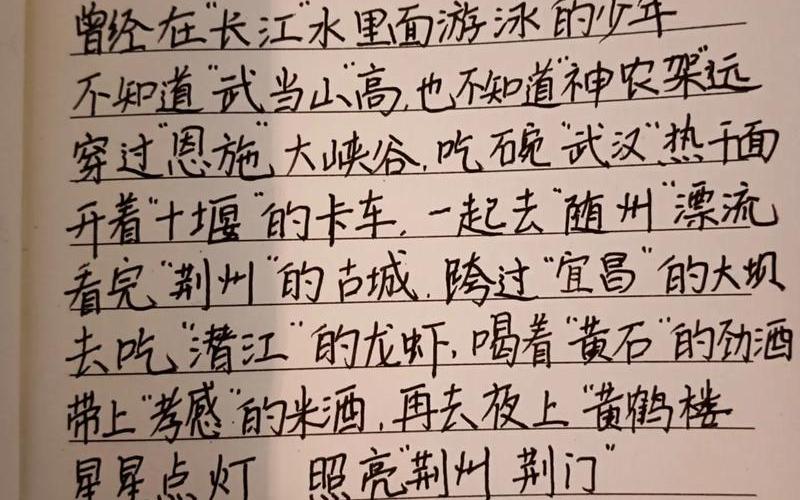 曾经在"长江"水里面游泳的少年
不知道"武当山"高,也不知道"神农架"远
穿过"恩施"大峡谷,吃碗"武汉"热干面
开着"十堰"的卡车,一起去"随州"漂流
看完"荆州"的古城,跨过"宜昌"的大坝
去吃"潜江"的龙虾,喝着"黄石"的劲酒
带上"孝感"的米酒,再去夜上"黄鹤楼
星星点灯 照亮"荆州 荆门"